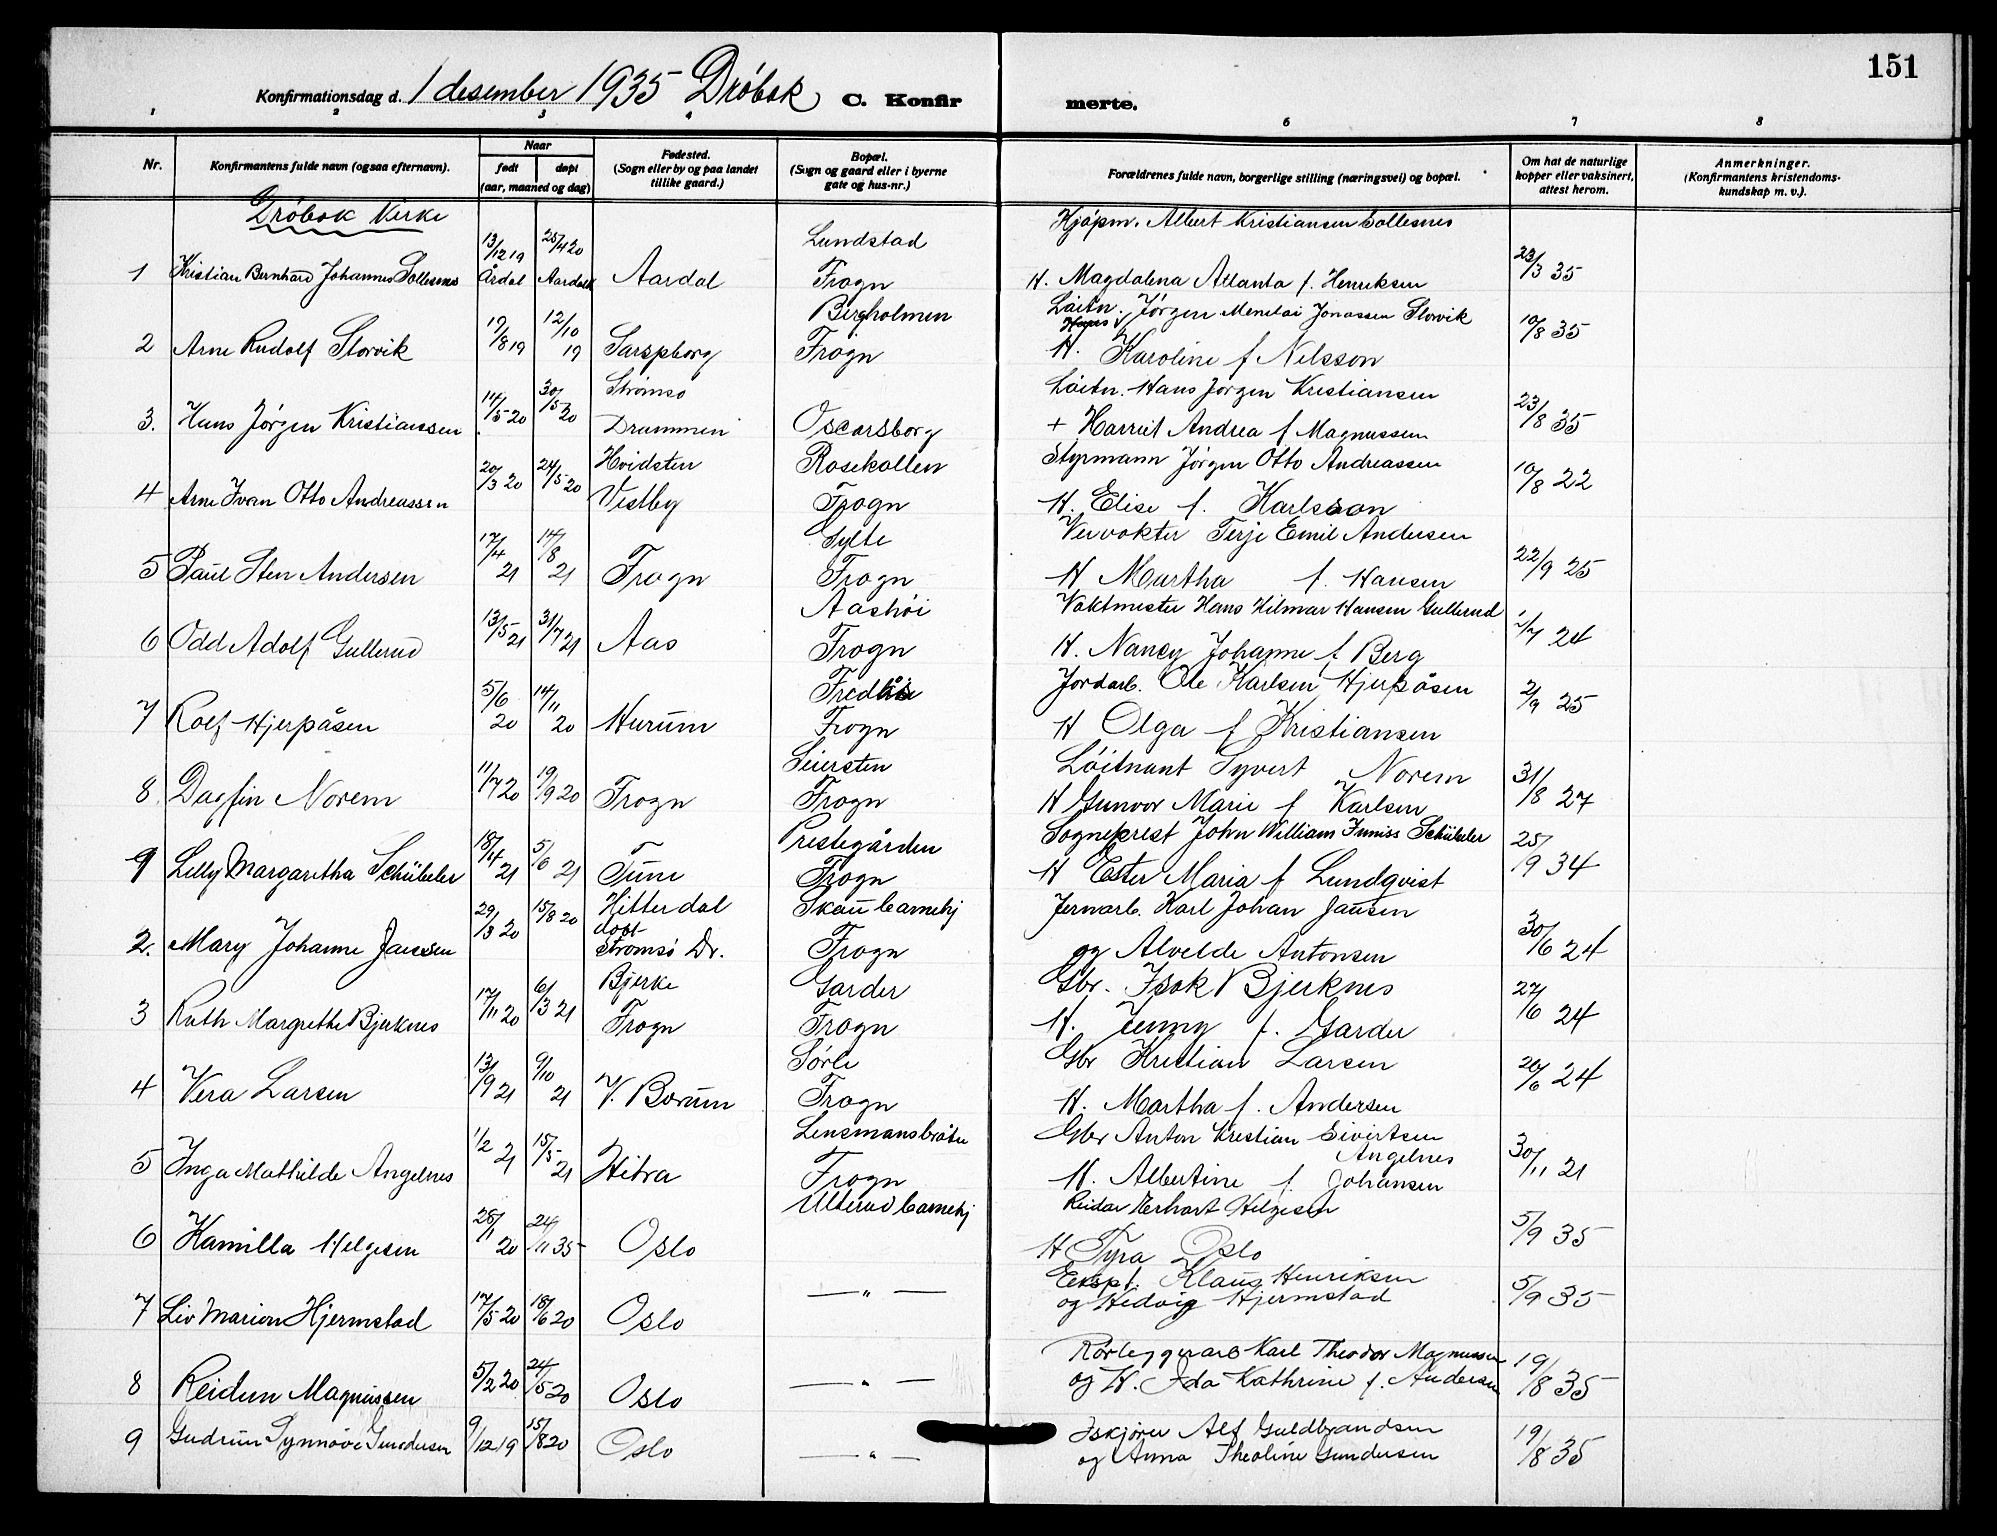 151
Konfirmationsdag d. 1 desember 1935 Drøbak C. Konfir merte.
1 2 3 4 6 7 8
Nr. Konfirmantens fulde navn (ogsaa efternavn). Naar født døpt (aar, maaned og dag) Fødested. (Sogn eller by og paa landet tillike gaard.) Bopæl. (Sogn og gaard eller i byerne gate og hus-nr.) Forældrenes fulde navn, borgerlige stilling (næringsvei) og bopæl. Om hat de naturlige kopper eller vaksinert, attest herom. Anmerkninger. (Konfirmantens kristendoms-kundskap m. v.).
Drøbak Kirke
Lundstad Kjøpm. Albert Kristiansen Sollesnes
1 Kristian Bernhard Johannes Sollesnes 13/12 19 Årdal 25/4 20 Aardal Aardal Frogn H. Magdalena Atlanta f. Henriksen 23/3 35
Bergholmen Løitn. Jørgen Menelai Jonassen Slorvik
2 Arne Rudolf Slorvik 19/8 19 12/10 19 Sarspborg Frogn H. Karoline f Nilsson 10/8 35
Strømsø Løitn. Hans Jørgen Kristiansen
3. Hans Jørgen Kristianssen 14/5 20 30/5 20 Drammen Oscarsborg + Harriet Andrea f Magnussen 23/8 35
Hvidsten Rosekollen Styrmann Jørgen Otto Andreassen
4 Arne Ivan Otto Andreassen 20/3 20 24/5 20 Vestby Frogn H. Elise f. Karlsson 10/8 22
Sylte Vervokter Terje Emil Andersen
5 Paul Sten Andersen 17/4 21 14/8 21 Frogn Frogn H Martha f. Hansen 22/9 25
Aashøi Vaktmester Hans Hilmar Hansen Gullerud
6 Odd Adolf Gullerud 13/5 21 31/7 21 Aas Frogn H. Nancy Johanne f Berg 1/7 24
Jordarb. Ole Karlsen Hjerpåsen
7 Rolf Hjerpåsen 5/6 20 14/11 20 Hurum Frogn H Olga f Kristiansen 2/9 25
Seiersten Løitnant Syvert Norem
8. Dagfin Norem 11/7 20 19/9 20 Frogn Frogn H Gunvor Marie f Karlsen 31/8 27
Prestegården Sogneprest John William Inniss Schübeler
1 Lilly Margaretha Schübeler 18/4 21 5/6 21 Tune Frogn H Ester Maria f Lundqvist 25/9 34
Hitterdal Skau barnehj Jernarb. Karl Johan Jansen
2. Mary Johanne Janssen 29/3 20 15/8 20 døbt Strømsø Dr. Frogn og Alvelde Antonsen 30/6 24
Bjerke Garder Gbr. Isak Bjerknes
3 Ruth Margrethe Bjerknes 17/11 20 6/3 21 Frogn Frogn H. Jenny f. Garder 27/6 24
Sørle Gbr Kristian Larsen
4 Vera Larsen 13/9 21 9/10 21 V. Borum Frogn H. Martha f. Andersen 20/6 24
Lensmansbråten Gbr Anton Kristian Sivertsen Angelnes
5 Inga Mathilde Angelnes 1/2 21 15/5 21 Hitra Frogn H. Albertine f. Johansen 30/11 21
Ullerud barnehj Reidar Erhart Helgesen
6 Kamilla Helgesen 28/1 20 24/11 35 Oslo H Tyra Oslo 5/9 35
Eksp. f. Klaus Henriksen
7 Liv Marion Hjermstad 17/5 20 18/6 20 Oslo — " — og Hedvig Hjermstad 5/9 35
Rørleggerarb Karl Theodor Magnussen
8 Reidun Magnussen 5/2 20 24/5 20 Oslo — " — og H. Ida Kathrine f. Andersen 19/8 35
Iskjører Alf Guldbrandsen
9 Gudrun Synnøve Gundersen 9/12 19 15/8 20 Oslo — " — og Anna Theoline Gundersen 19/8 35